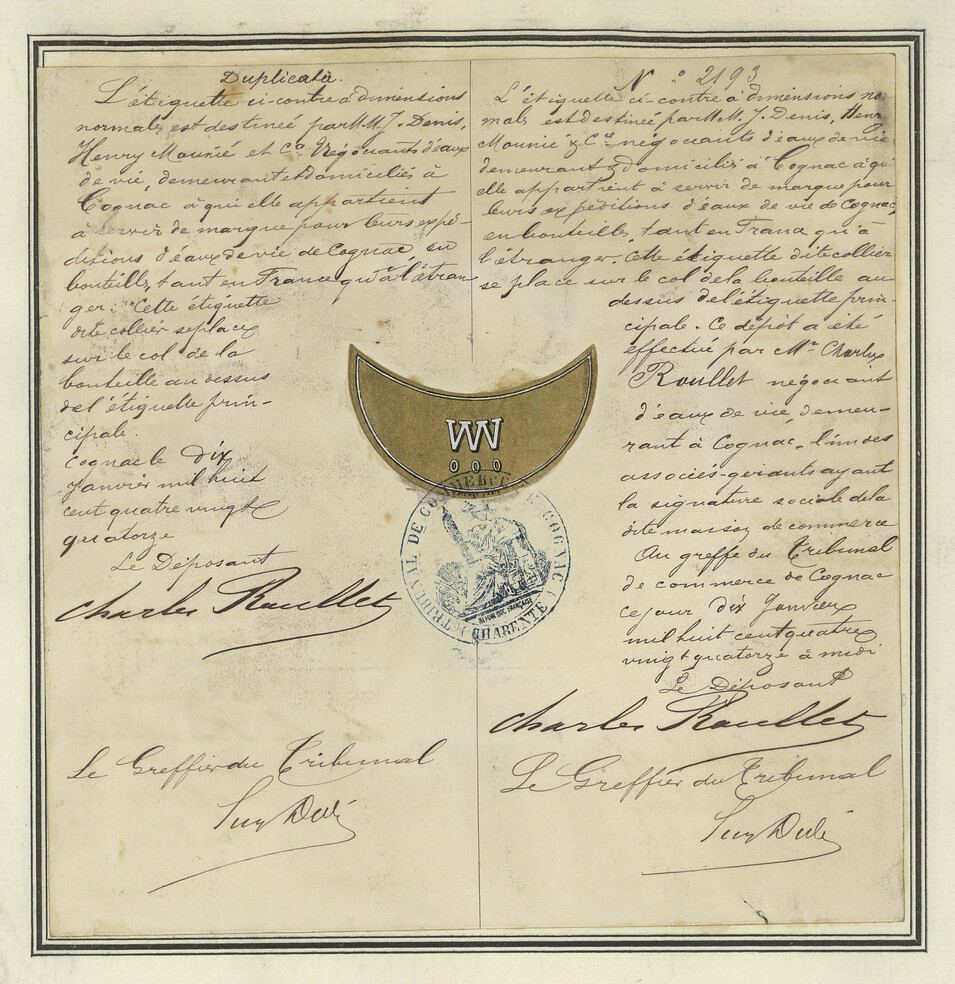 Duplicata.
L'étiquette ci-contre à dimensions
normales est destinée par M.M. J. Denis,
Henry Mounié et Cº. Négociants d'eaux
de vie, demeurant et domiciliés à
Cognac à qui elle appartient
à servir de marque pour leurs expé-
ditions d'eaux de vie de Cognac, en
bouteilles, tant en France qu'à l'étran
ger. Cette étiquette
dite collier se place
sur le col de la
bouteille au dessus
de l'étiquette prin-
cipale.
Cognac le dix
Janvier mil huit
cent quatre vingt
quatorze
Le Déposant
Charles Roullet
Le Greffier du Tribunal
Nº 2193
L'étiquette ci-contre à dimensions nor
males est destinée par M.M. J. Denis, Henry
Mounié & Cie négociants d'eaux de vie
demeurant & domiciliés à Cognac à qui
elle appartient à servir de marque pour
leurs expéditions d'eaux de vie de Cognac,
en bouteilles, tant en France qu'à
l'étranger. Cette étiquette dite collier
se place sur le col de la bouteille au
dessus de l'étiquette prin-
cipale. Ce dépôt a été
effectué par Mr. Charles
Roullet négociant
d'eaux de vie demeu-
rant à Cognac, l'un des
associés-gérants ayant
la signature sociale de la
dite maison de commerce
Au greffe du Tribunal
de commerce de Cognac
ce jour dix Janvier
mil huit cent quatre
vingt quatorze à midi
Le Déposant
Charles Roullet
Le Greffier du Tribunal
VVV
000
TRIBUNAL DE COMMERCE DE COGNAC
RÉPUBLIQUE FRANÇAISE
(CHARENTE)